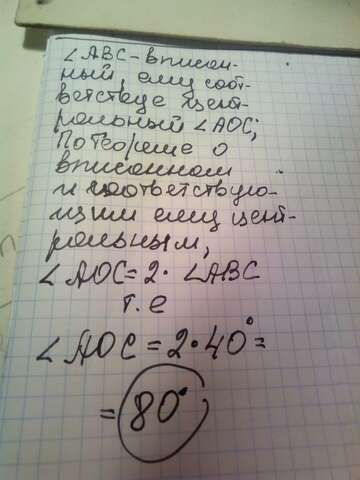 ∠ABC-вписан-
ный, ему соот-
ветствуе цент-
ральный ∠AOC;
По теореме о
вписанном
и соответствую-
щим ему цент-
ральным,
∠AOC=2· ∠ABC
т.е
∠AOC=2·40°=
=80°